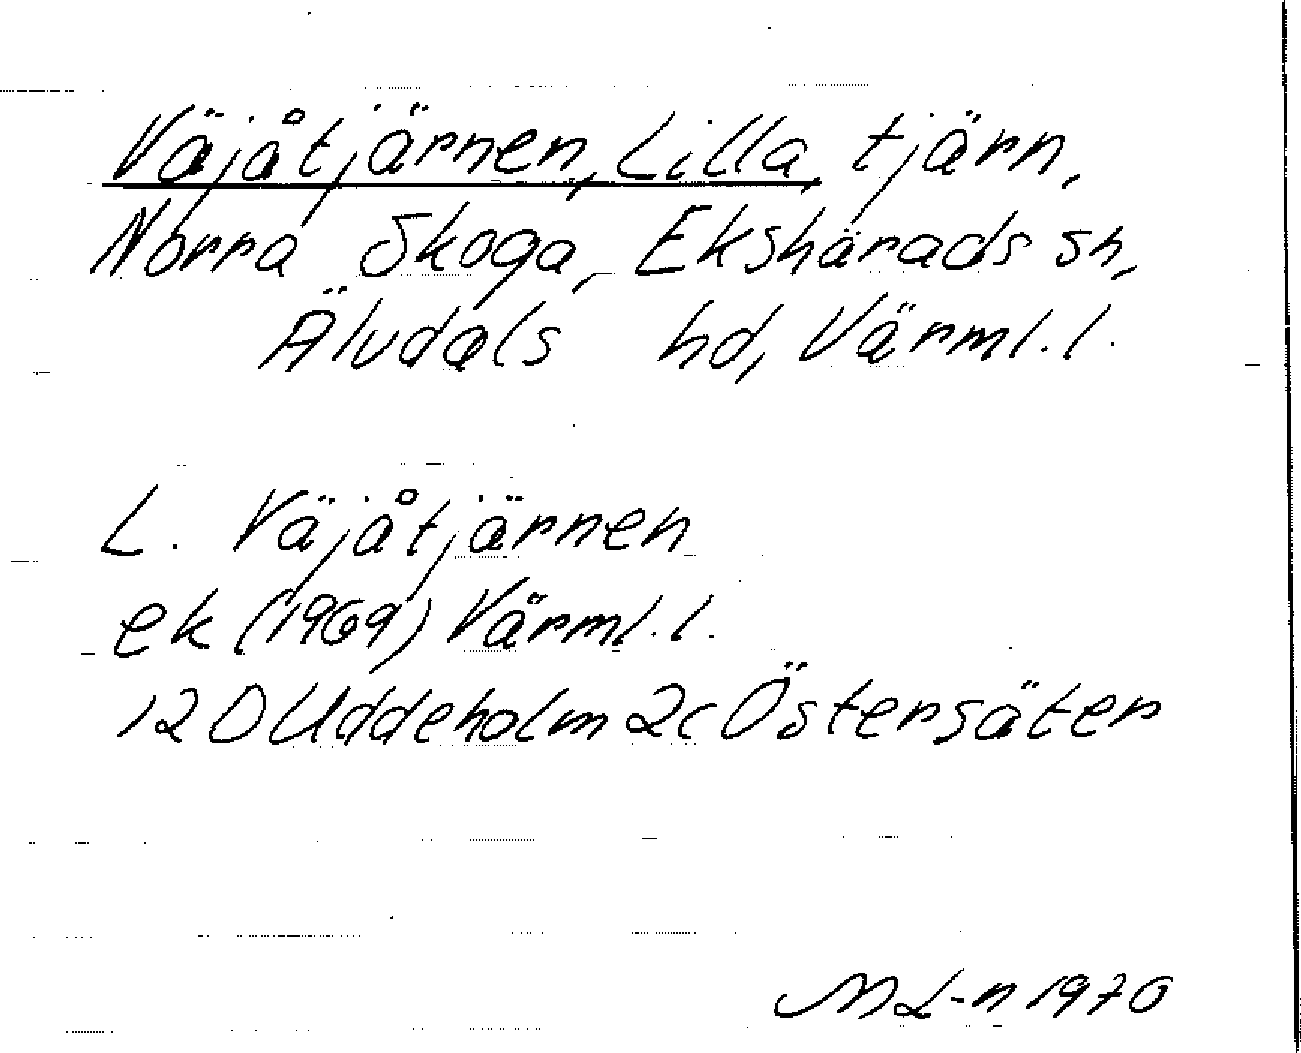 Väjåtjärnen, Lilla, tjärn,
Norra Skoga, Ekshärads sn,
Älvdals hd, Värml. l.
L. Väjåtjärnen
ek (1969) Värml. l.
12D Uddeholm 2c Östersäter
ML-n 1970